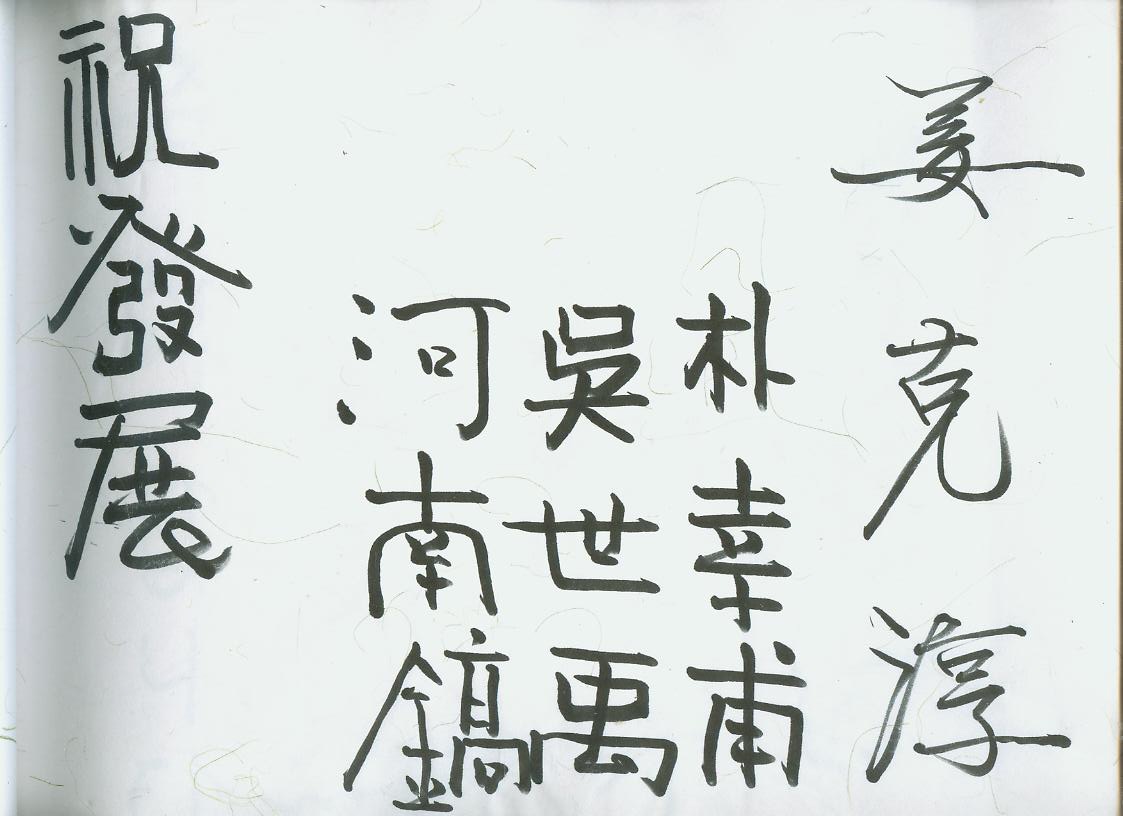 姜克淳
朴幸甫
吳世禹
河南鎬
祝發展